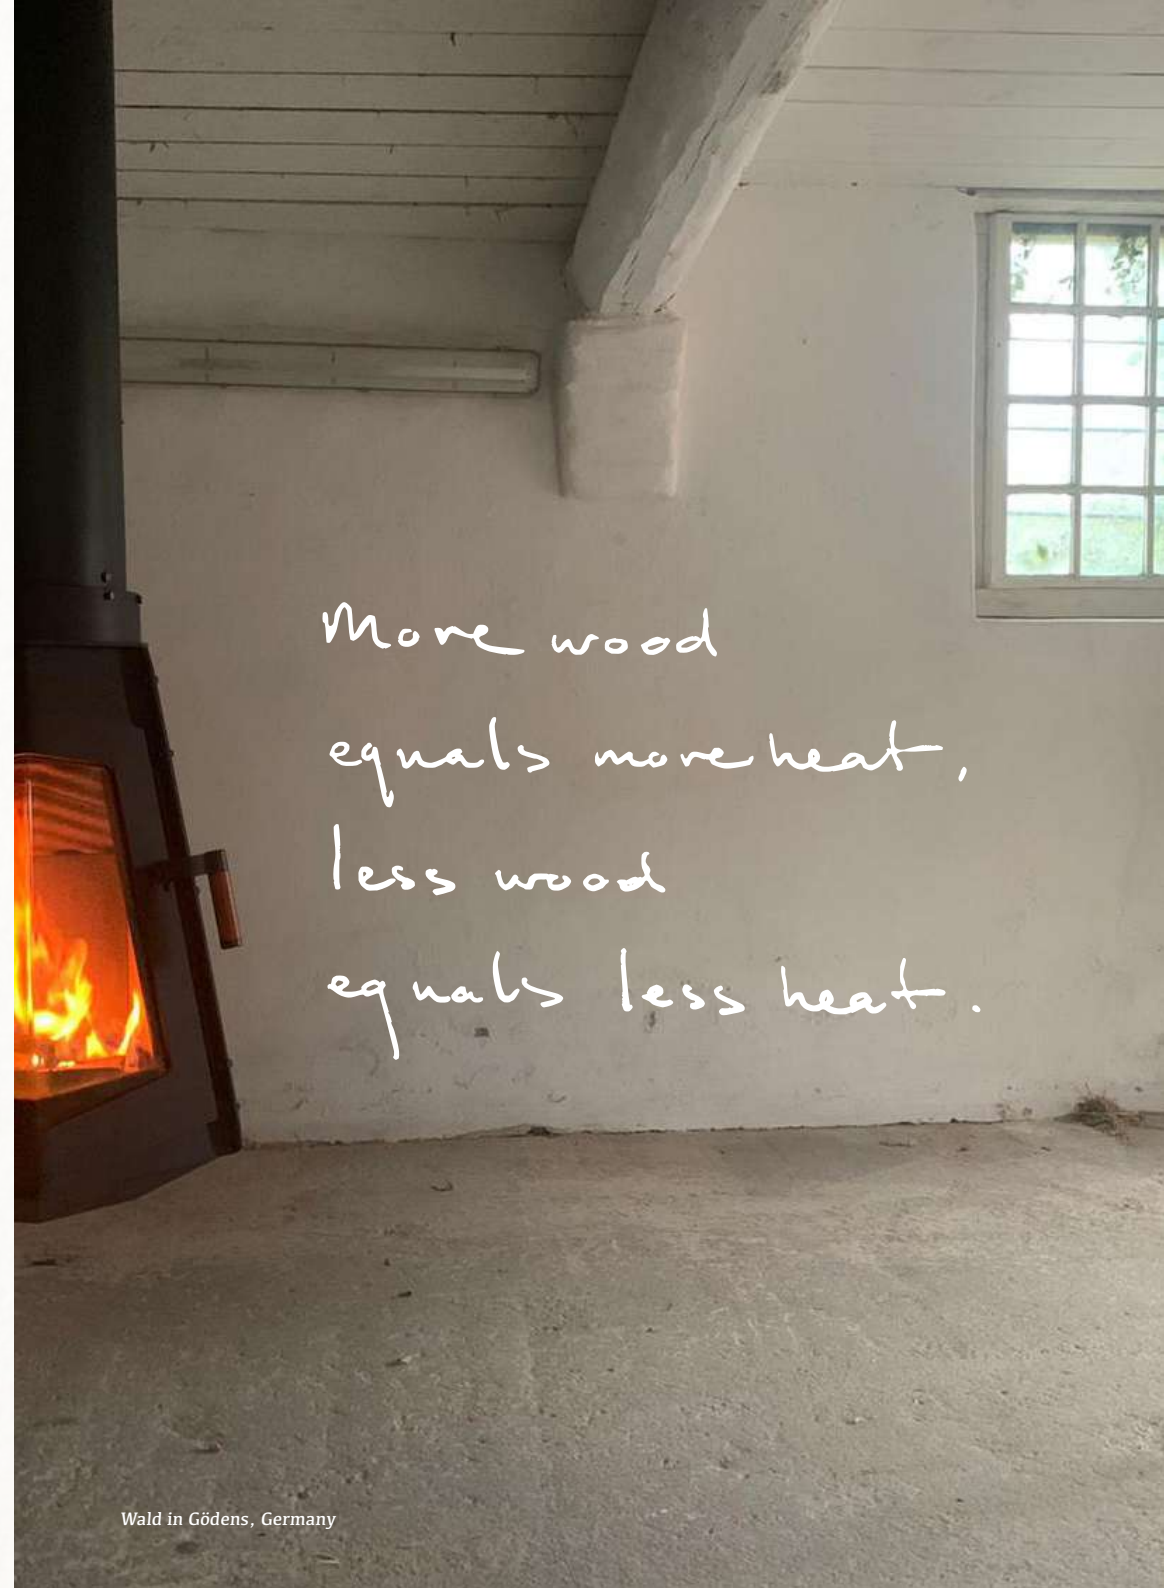 More wood
equals more heat,
less wood
equals less heat.
Wald in Gödens, Germany